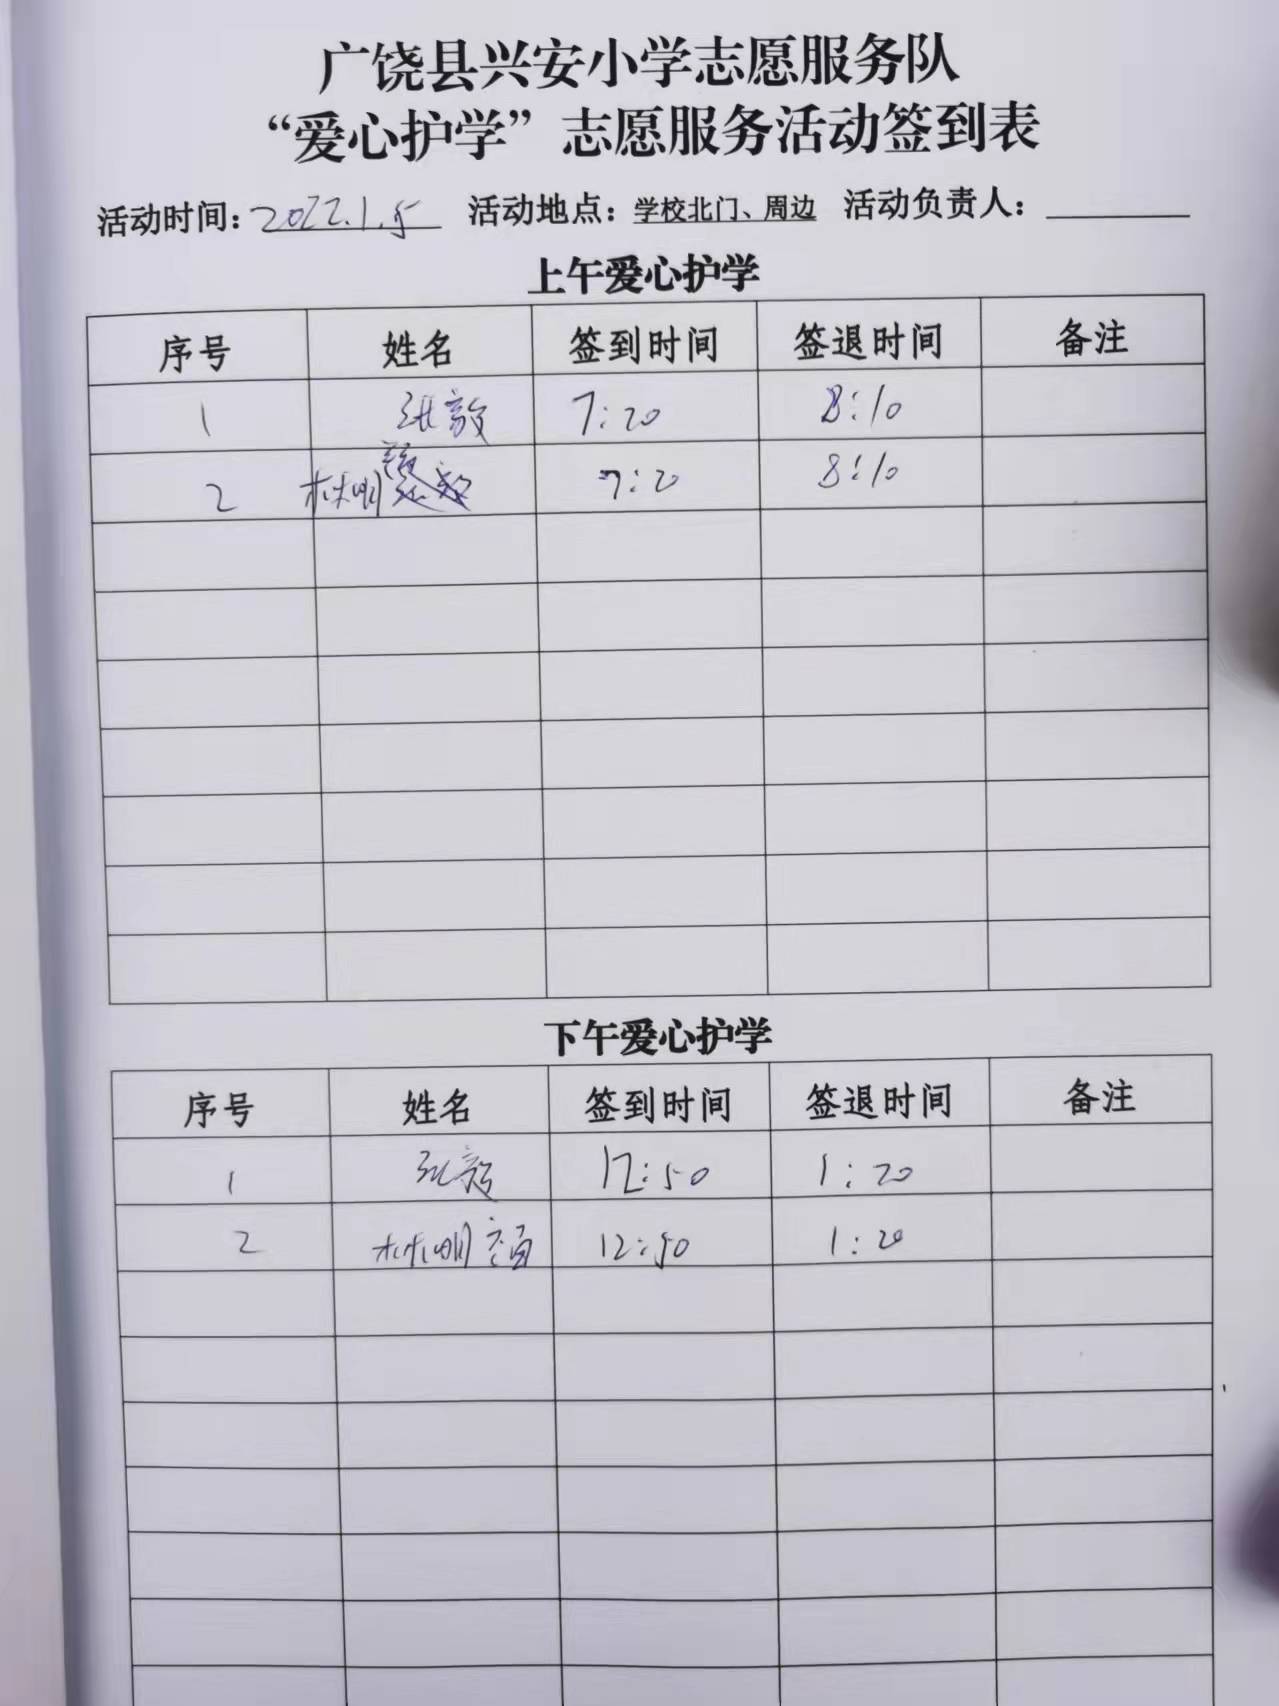 广饶县兴安小学志愿服务队
“爱心护学”志愿服务活动签到表
活动时间：2022.1.5 活动地点：学校北门、周边 活动负责人：
上午爱心护学
序号 姓名 签到时间 签退时间 备注
1 张 7:20 8:10
2 林明 7:20 8:10
下午爱心护学
序号 姓名 签到时间 签退时间 备注
1 张 12:50 1:20
2 林明 12:50 1:20